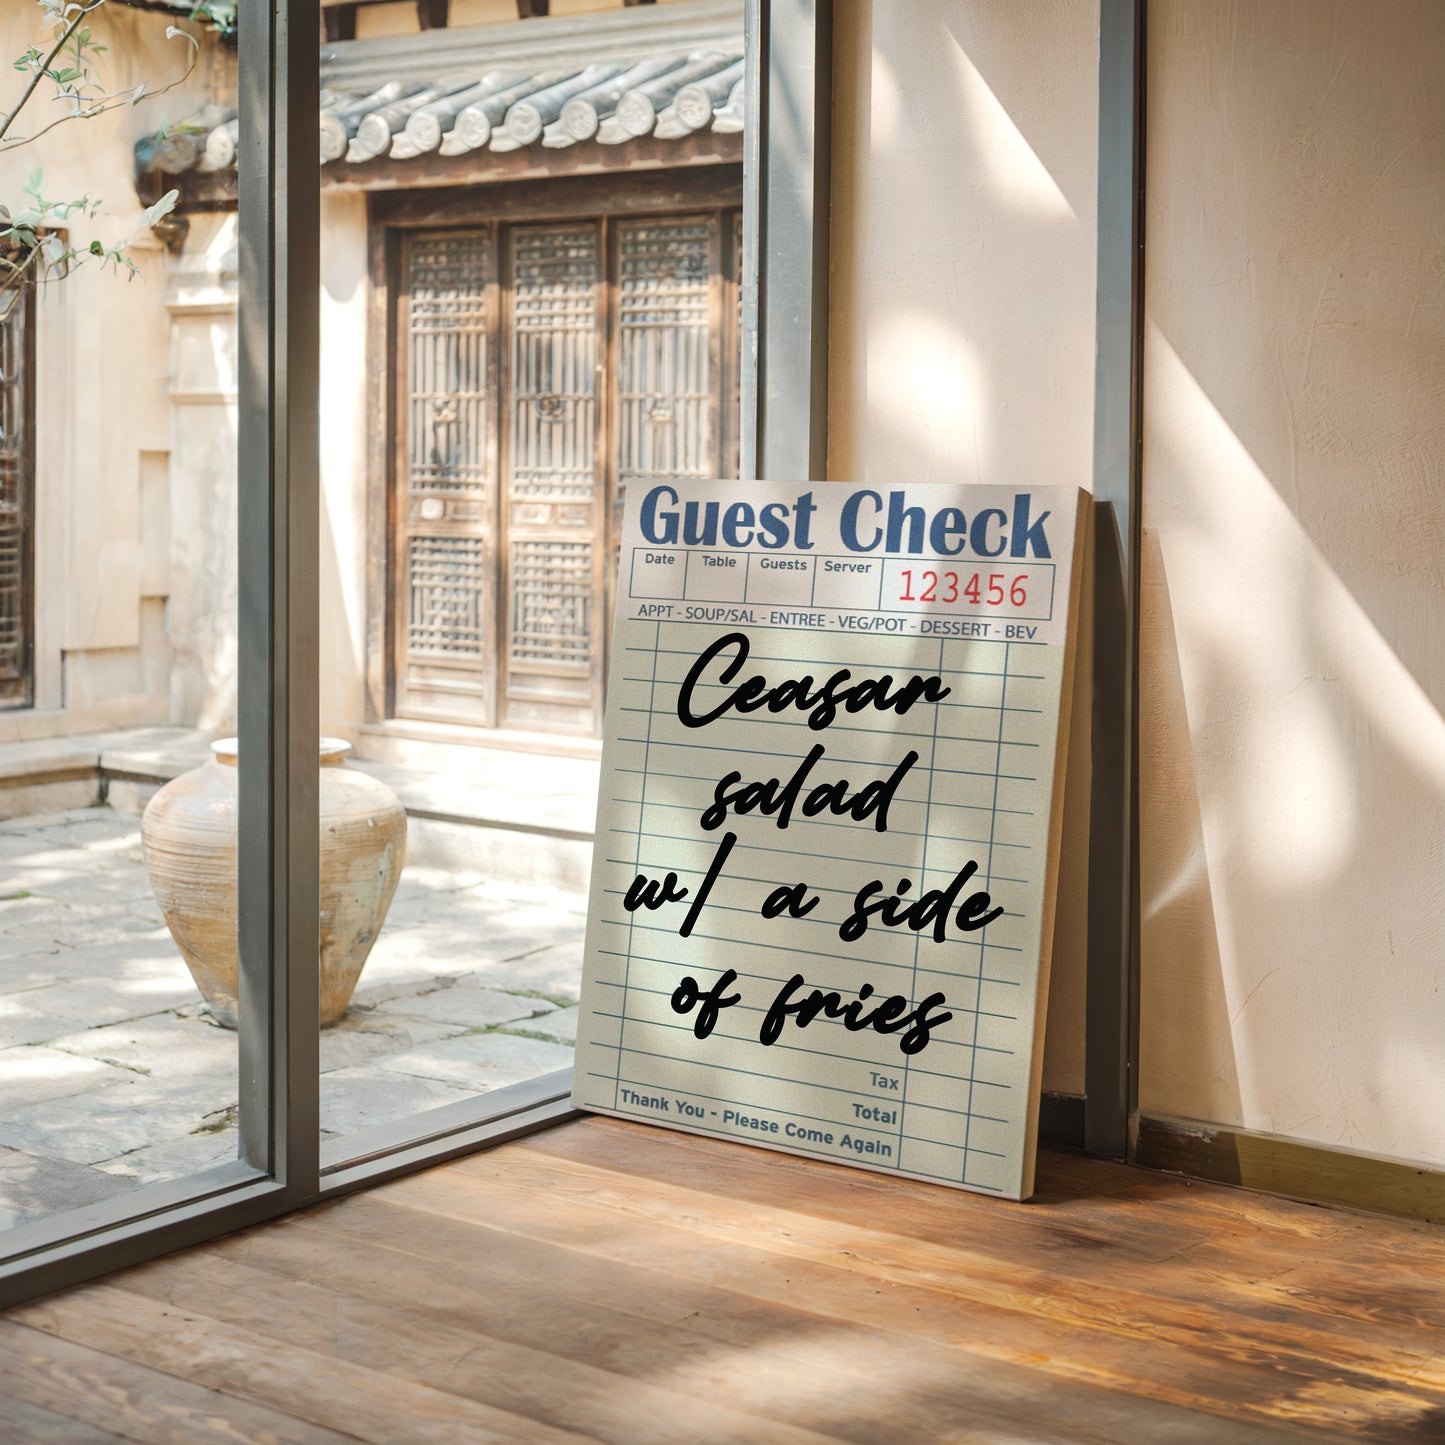 Guest Check
Date Table Guests Server 123456
APPT - SOUP/SAL - ENTREE - VEG/POT - DESSERT - BEV
Ceasar
salad
w/ a side
of fries
Tax
Total
Thank You - Please Come Again